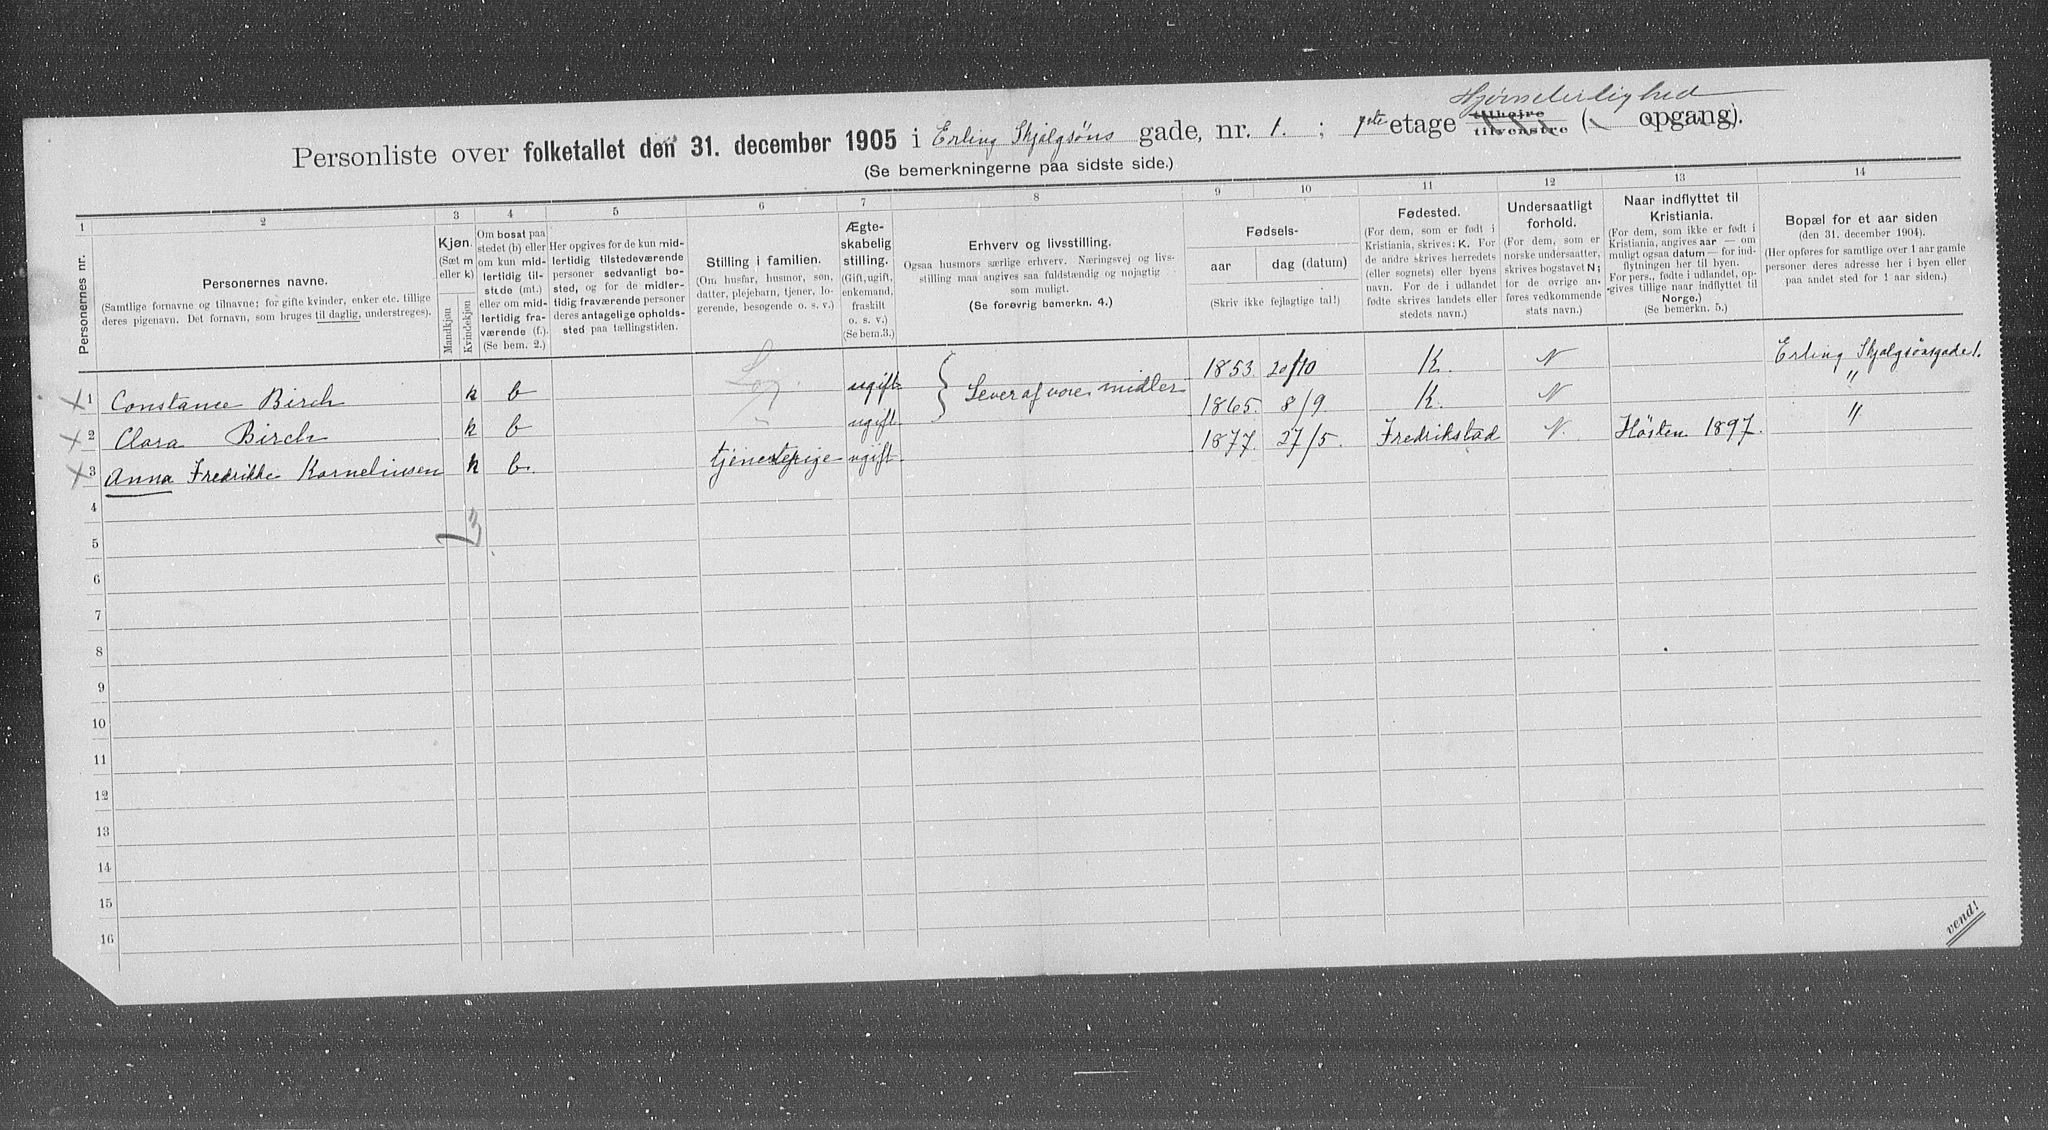 Hjørneleilighed
Personliste over folketallet den 31. december 1905 i Erling Skjalgsøns gade, nr. 1. ; 1ste etage tilhøire tilvenstre ( opgang).
(Se bemerkningerne paa sidste side.)
1 2 3 4 5 6 7 8 9 10 11 12 13 14
Personernes nr.
Personernes navne.
(Samtlige fornavne og tilnavne; for gifte kvinder, enker etc. tillige
deres pigenavn. Det fornavn, som bruges til daglig, understreges).
Kjøn.
(Sæt m
eller k)
Mandkjøn
Kvindekjøn
Om bosat paa
stedet (b) eller
om kun mid-
lertidig til-
stede (mt.)
eller om mid-
lertidig fra-
værende (f.)
(Se bem. 2.)
Her opgives for de kun mid-
lertidig tilstedeværende
personer sedvanligt bo-
sted, og for de midler-
tidig fraværende personer
deres antagelige opholds-
sted paa tællingstiden.
Stilling i familien.
(Om husfar, husmor, søn,
datter, plejebarn, tjener, lo-
gerende, besøgende o. s. v.)
Ægte-
skabelig
stilling.
(Gift, ugift,
enkemand,
fraskilt
o. s. v.)
(Se bem.3.)
Erhverv og livsstilling.
Ogsaa husmors særlige erhverv. Næringsvej og livs-
stilling maa angives saa fuldstændig og nøjagtig
som muligt.
(Se forøvrig bemerkn. 4.)
Fødsels-
aar dag (datum)
(Skriv ikke fejlagtige tal!)
Fødested.
(For dem, som er født i
Kristiania, skrives: K. For
de andre skrives herredets
(eller sognets) eller byens
navn. For de i udlandet
fødte skrives landets eller
stedets navn.)
Undersaatligt
forhold.
(For dem, som er
norske undersaatter,
skrives bogstavet N;
for de øvrige an-
føres vedkommende
stats navn.)
Naar indflyttet til
Kristiania.
(For dem, som ikke er født i
Kristiania, angives aar — om
muligt ogsaa datum — for ind-
flytningen her til byen.
For pers., fødte i udlandet, op-
gives tillige naar indflyttet til
Norge.)
(Se bemerkn. 5.)
Bopæl for et aar siden
(den 31. december 1904).
(Her opføres for samtlige over 1 aar gamle
personer deres adresse her i byen eller
paa andet sted for 1 aar siden.)
× 1 Constance Birch k b ugift Lever af vore midler 1853. 20/10 K. N Erling Skjalgsønsgade 1.
× 2 Clara Birch k b ugift 1865. 8/9. K. N "
× 3 Anna Fredrikke Korneliusen k b. tjenestepige ugift 1877. 27/5. Fredrikstad N. Høsten 1897. "
4
3
5
6
7
8
9
10
11
12
13
14
15
16
vend!